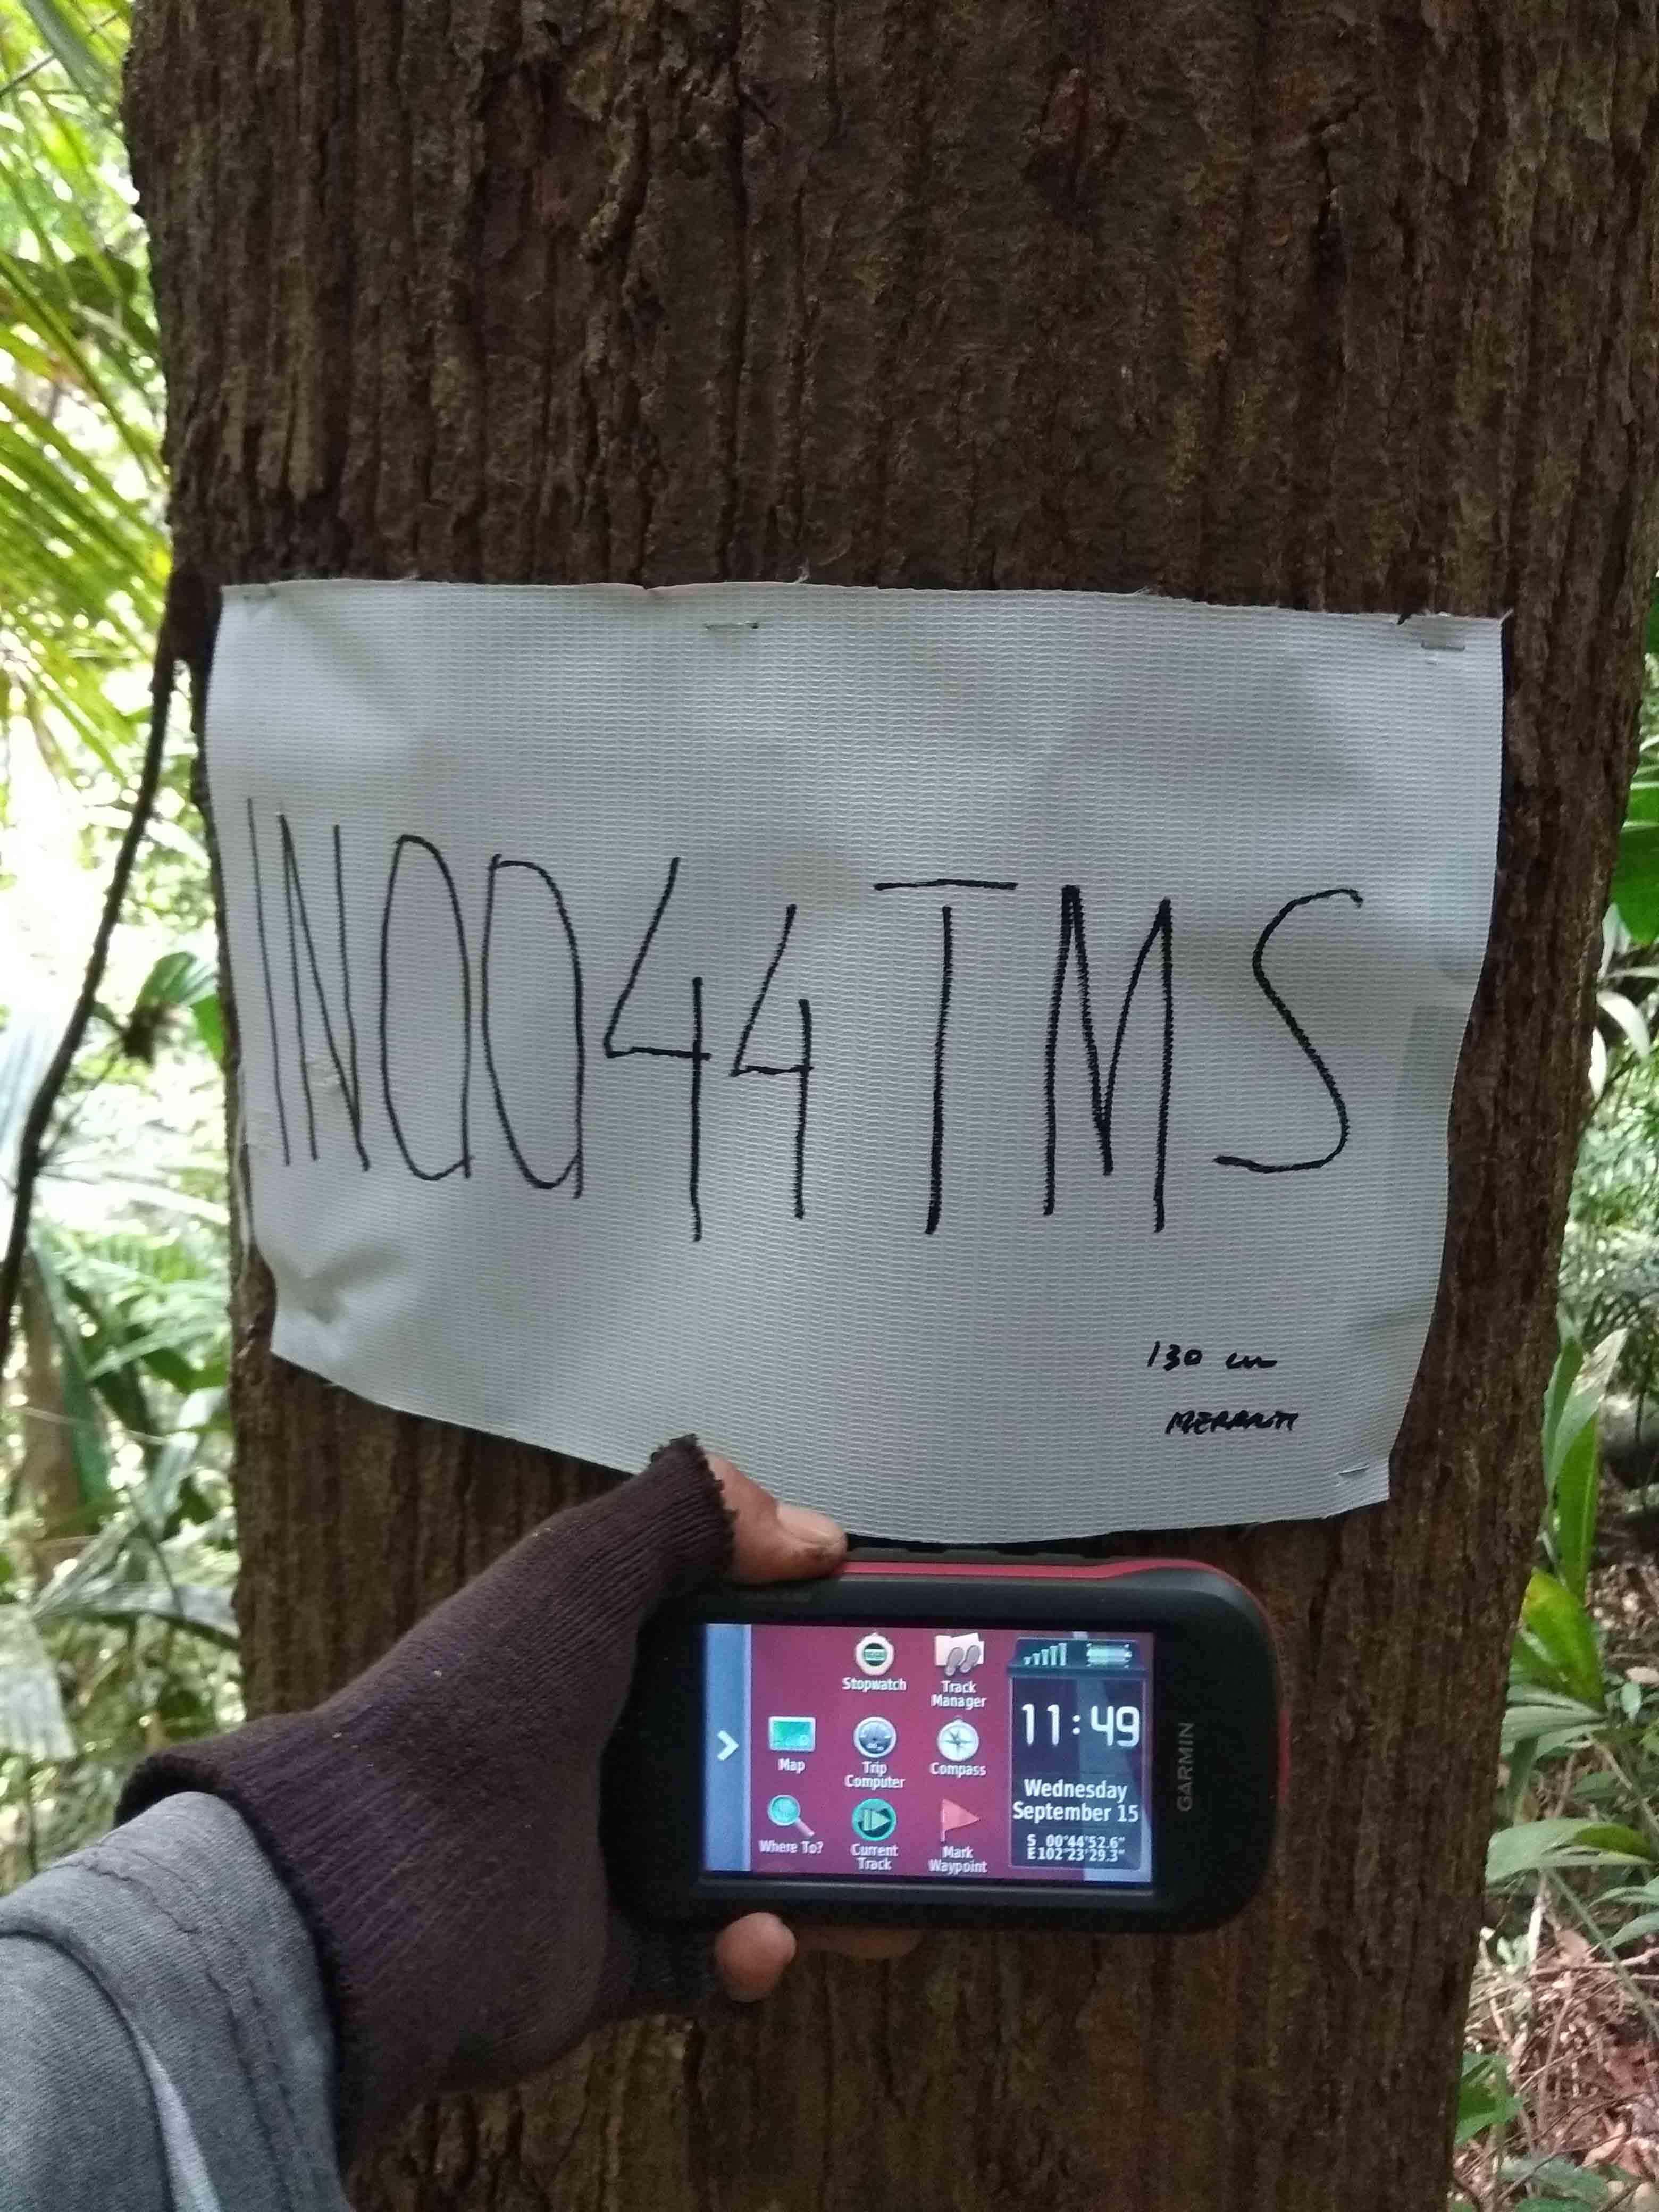 IN0044TMS
130 cm
MERANTI
Stopwatch
Track
Manager
Map
Trip
Computer
Compass
Where To?
Current
Track
Mark
Waypoint
11:49
Wednesday
September 15
S 00°44'52.6"
E102°23'29.3"
GARMIN